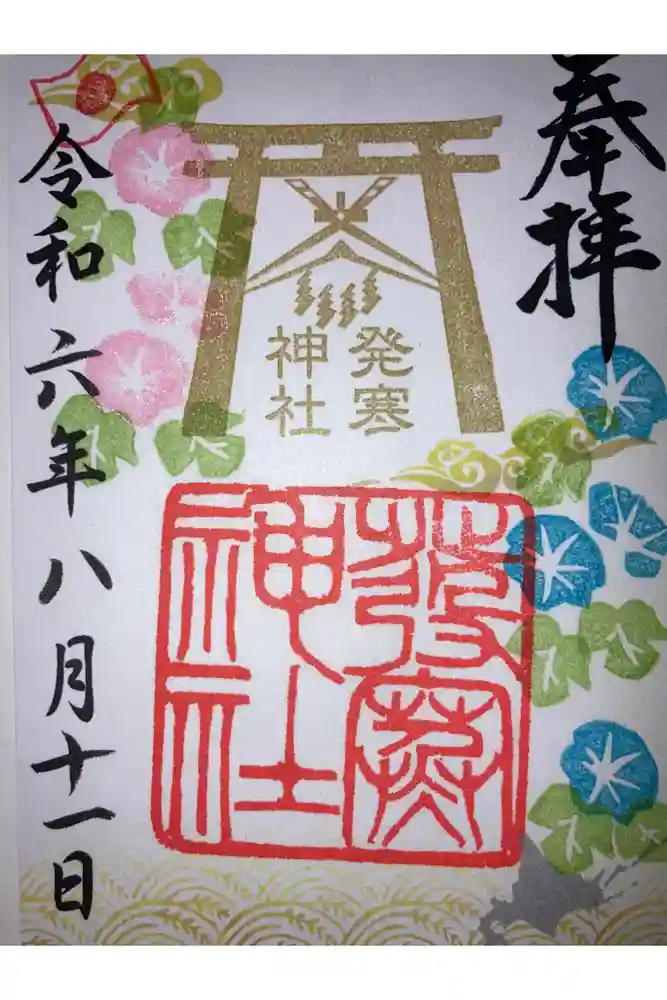 奉拝
発寒
神社
發寒
神社
令和六年八月十一日